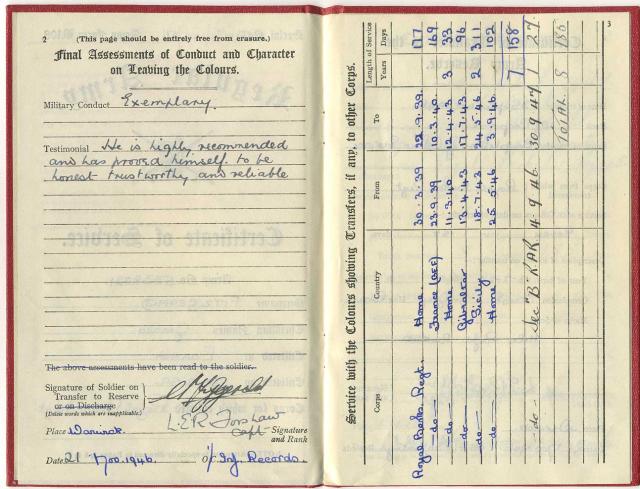 2 (This page should be entirely free from erasure.)
Final Assessments of Conduct and Character
on Leaving the Colours.
Military Conduct Exemplary.
Testimonial He is highly recommended
and has proved himself to be
honest trustworthy and reliable
The above assessments have been read to the soldier.
Signature of Soldier on
Transfer to Reserve
or on Discharge
(Delete words which are inapplicable.)
L.E.R. Forshaw
Capt Signature
and Rank
Place Warwick.
Date 21 Nov. 1946 Inf. Records.
3
Service with the Colours showing Transfers, if any, to other Corps.
Corps Country From To Length of Service
Years Days
Royal Berks. Regt. Home 30.3.39 22.9.39. 177
-do- France (BEF) 23.9.39 10.3.40. 169
-do- Home 11.3.40 12.4.43 3 33
-do- Gibraltar 13.4.43 17.7.43. 96
-do- Sicily 18.7.43 24.5.46 2 311
-do- Home 25.5.46 3.9.46. 102
7 158
-do- Sec "B" RAR 4.9.46. 30.9.47 1 27
TOTAL. 8 185